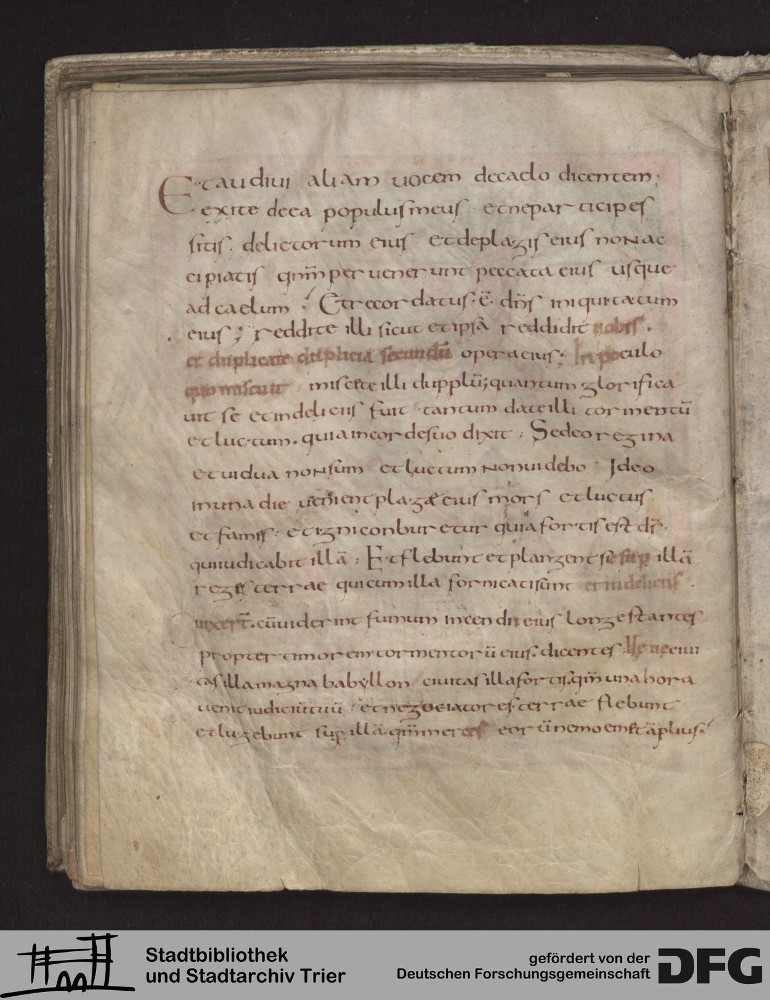 Et audiui aliam uocem decaelo dicentem;
exite deea populusmeus etneparticipes
sitis. delictorum eius etdeplagiseius nonac
cipiatis qnmperuenerunt peccata eius usque
adcaelum. Etrecordatus.ē. dns iniquitatum
eius; reddite illi sicut etipsa reddidit uobis.
et duplicate duplicia secundū operaeius; Inpoculo
quomiscuit misceteilli dupplū; quantum glorifica
uit se etindeliciis fuit tantum dateilli tormentū
etluctum. quiaincordesuo dixit. Sedeoregina
etuidua nonsum etluctum nonuidebo Ideo
inunadie uenientplagæeius mors etluctus
etfamis. etigniconburetur quiafortisest ds.
quiiudicabit illā. Etflebuntetplangentsesup illā
regesterrae quicumilla fornicatisunt etindeliciis
uixert. cūuiderint fumum incendiieius longestantes
proptertimoremtormentorū eius. dicentes. Ueueciui
tasillamagnababyllon ciuitasillafortis. qmunahora
uenitiudiciūtuū etnegotiatoresterrae flebunt
etlugebunt sup illā. qmmerces eorūnemoemetāplius.
Stadtbibliothek
und Stadtarchiv Trier
gefördert von der
Deutschen Forschungsgemeinschaft
DFG